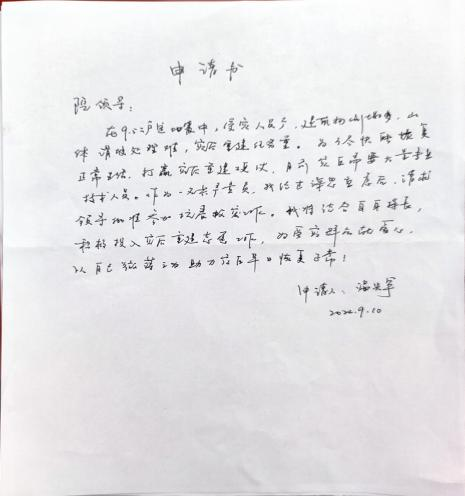 申请书
院领导：
在9.5泸定地震中，受灾人员多，建筑物垮塌多，山
体滑坡处理难，灾后重建任务重。为了尽快恢复
正常生活，打赢灾后重建硬仗，目前灾区需要大量专业
技术人员。作为一名共产党员，我经过深思熟虑后，请求
领导批准参加抗震救灾工作。我将结合自身特长，
积极投入灾后重建志愿工作，为受灾群众献爱心，
以自己行动助力灾区早日恢复正常！
申请人：
2022.9.10